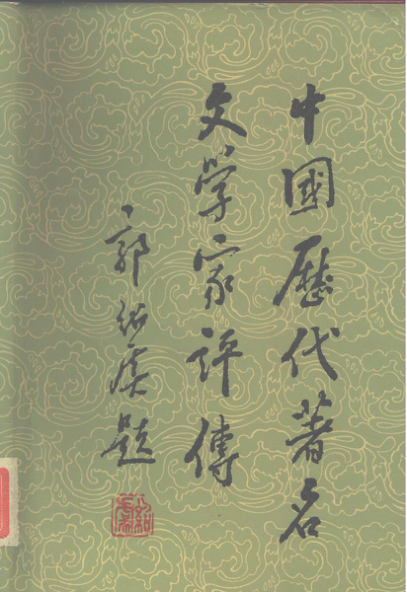 中國歷代著名
文學家評傳
郭紹虞題
紹虞